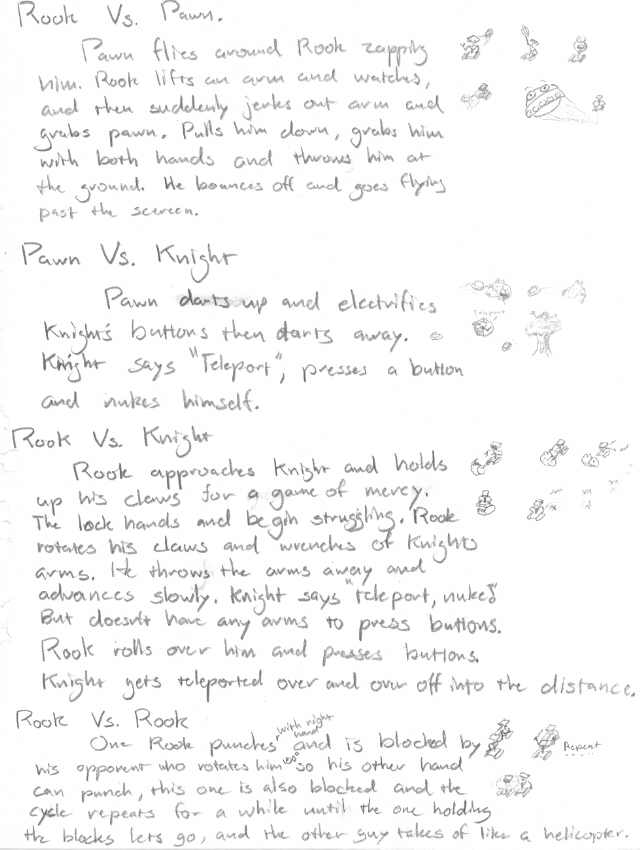 Rook Vs. Pawn.
Pawn flies around Rook zapping
him. Rook lifts an arm and watches,
and then suddenly jerks out arm and
grabs pawn. Pulls him down, grabs him
with both hands and throws him at
the ground. He bounces off and goes flying
past the screen.
Pawn Vs. Knight
Pawn darts up and electrifies
Knight's buttons then darts away.
Knight says "Teleport", presses a button
and nukes himself.
Rook Vs. Knight
Rook approaches Knight and holds
up his claws for a game of mercy.
The lock hands and begin struggling. Rook
rotates his claws and wrenches of Knights
arms. He throws the arms away and
advances slowly. Knight says "teleport, nuke!"
But doesn't have any arms to press buttons.
Rook rolls over him and presses buttons.
Knight gets teleported over and over off into the distance.
Rook Vs. Rook
with right
hand
One Rook punches and is blocked by
his opponent who rotates him 180° so his other hand
can punch, this one is also blocked and the
cycle repeats for a while until the one holding
the blocks lets go, and the other guy takes of like a helicopter.
Repeat